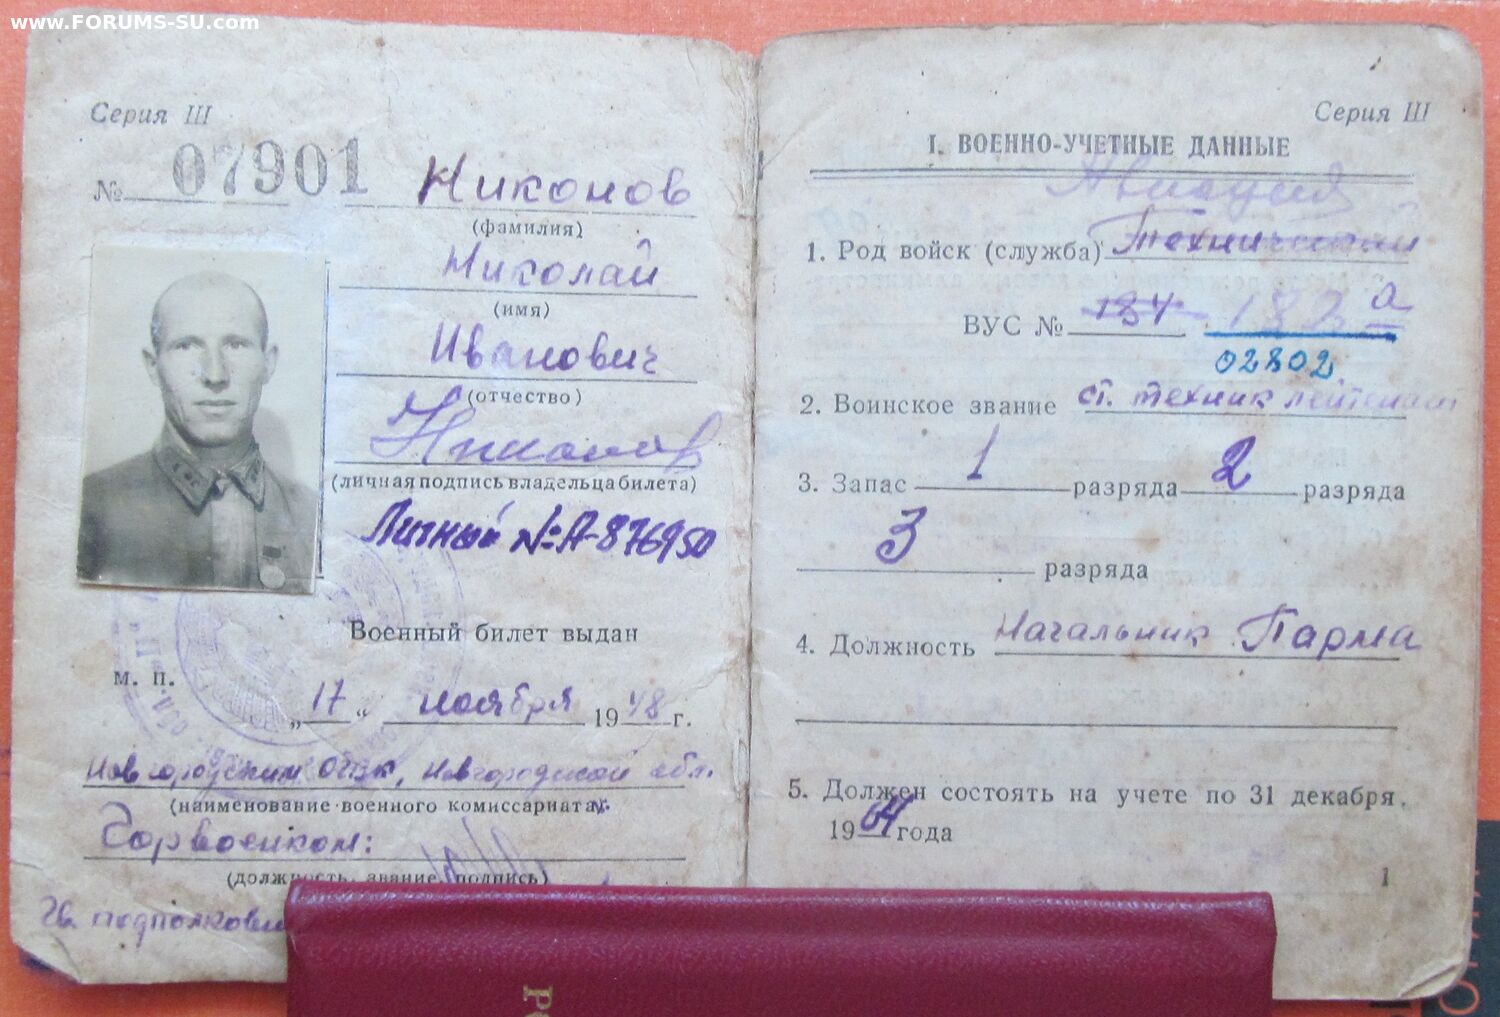 www.FORUMS-SU.com
Серия Ш
№ 07901
Никонов
(фамилия)
Николай
(имя)
Иванович
(отчество)
Никонов
(личная подпись владельца билета)
Личный № А-876950
Военный билет выдан
м. п.
„ 17 “ ноября 1948 г.
Новгородским ОГВК, Новгородской обл.
(наименование военного комиссариата)
Горвоенком:
(должность, звание, подпись)
Гв. подполковни
Серия Ш
I. ВОЕННО-УЧЕТНЫЕ ДАННЫЕ
Авиация
1. Род войск (служба) Технический
ВУС № 134 182 а
02802
2. Воинское звание ст. техник лейтенант
3. Запас 1 разряда 2 разряда
3 разряда
4. Должность Начальник Парма
5. Должен состоять на учете по 31 декабря
1964 года
1